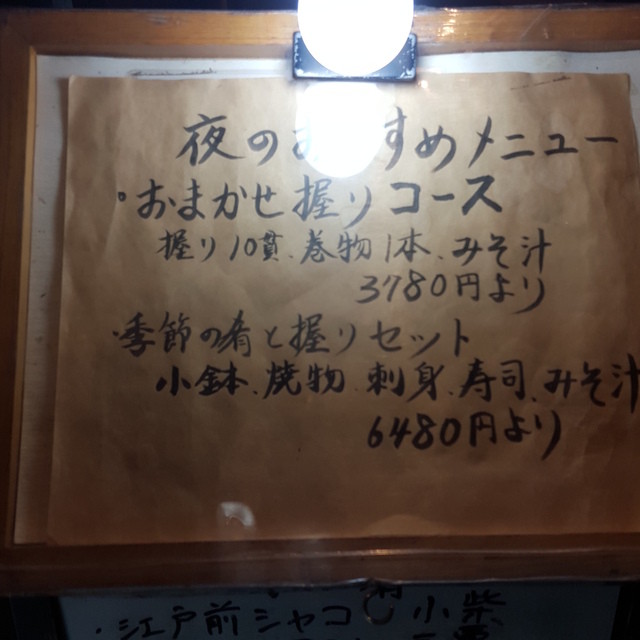 夜のおすすめメニュー
・おまかせ握りコース
握り10貫、巻物1本、みそ汁
3780円より
・季節の肴と握りセット
小鉢、焼物、刺身、寿司、みそ汁
6480円より
・江戸前シャコ 小柴